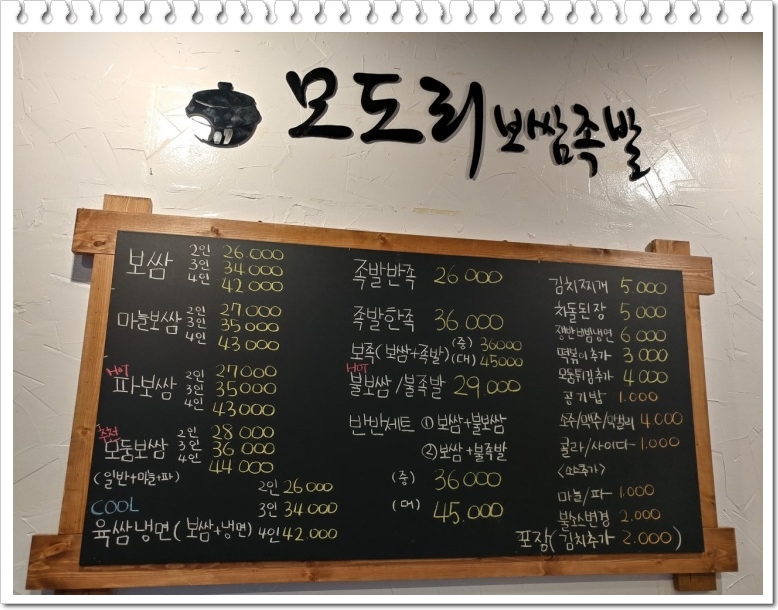 모도리 보쌈족발
보쌈 2인 26.000
3인 34.000
4인 42.000
마늘보쌈 2인 27.000
3인 35.000
4인 43.000
HOT
파보쌈 2인 27.000
3인 35.000
4인 43.000
추천
모둠보쌈 2인 28.000
3인 36.000
4인 44.000
(일반+마늘+파)
COOL
육쌈냉면(보쌈+냉면) 2인 26.000
3인 34.000
4인 42.000
족발반족 26.000
족발한족 36.000
보족(보쌈+족발) (중) 36000
(대) 45000
HOT
불보쌈/불족발 29.000
반반세트 ①보쌈+불보쌈
②보쌈+불족발
(중) 36.000
(대) 45.000
김치찌개 5.000
차돌된장 5.000
쟁반비빔냉면 6.000
떡볶이추가 3.000
모둠튀김추가 4.000
공기밥 1.000
소주/맥주/막걸리 4.000
콜라/사이다 1.000
<소스추가>
마늘/파 1.000
불소스변경 2.000
포장(김치추가 2.000)